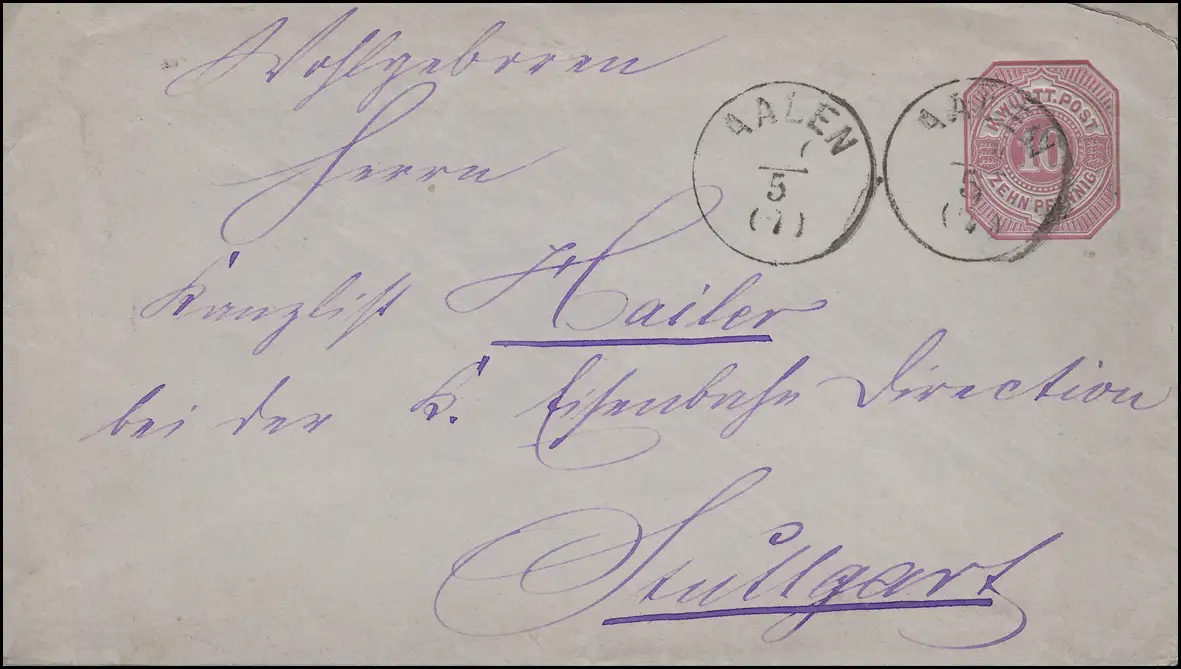 Wohlgeboren
Herrn
Kanzlist Hailer
bei der K. Eisenbahn Direction
Stuttgart
AALEN
5
(7)
AALEN
5
K. WÜRTT. POST
10
ZEHN PFENNIG